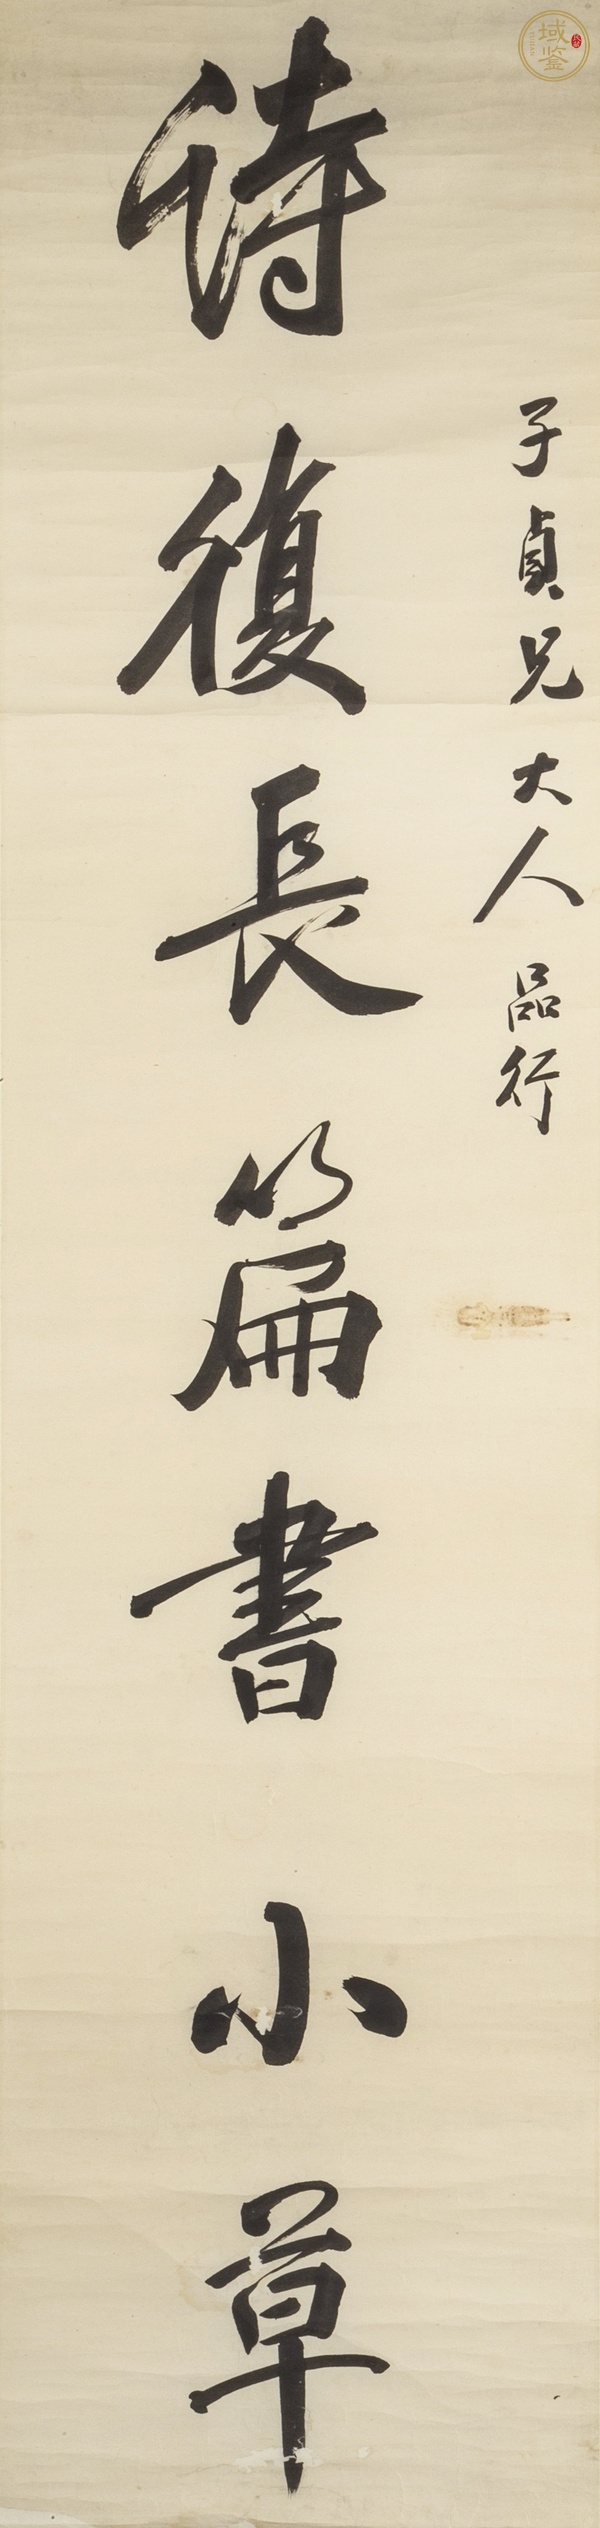 子貞兄大人品行
待復長篇書小草
域鉴